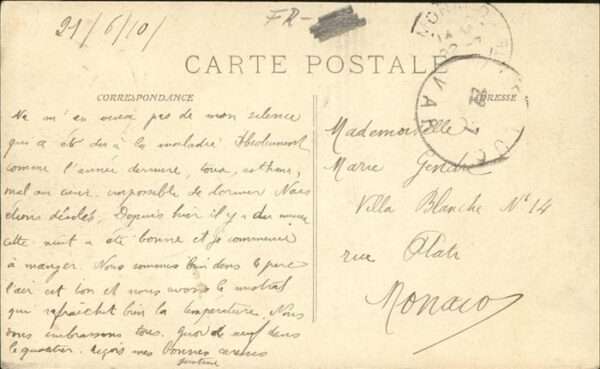 21/6/10/
FR-
CARTE POSTALE
CORRESPONDANCE
ADRESSE
MON
VAR
Ne m'en veux pas de mon silence
qui a été du à la maladie. Absolument
comme l'année dernière, toux, asthme,
mal au cœur, impossible de dormir Nous
étions désolés, Depuis hier il y a du mieux
cette nuit a été bonne et je commence
à manger. Nous sommes bien dans le parc
l'air est bon et nous avons le mistral
qui rafraichit bien la température. Nous
vous embrassons tous. Quoi de neuf dans
le quartier. reçois mes bonnes caresses
Mademoiselle
Marie
Villa Blanche N° 14
rue Plati
Monaco